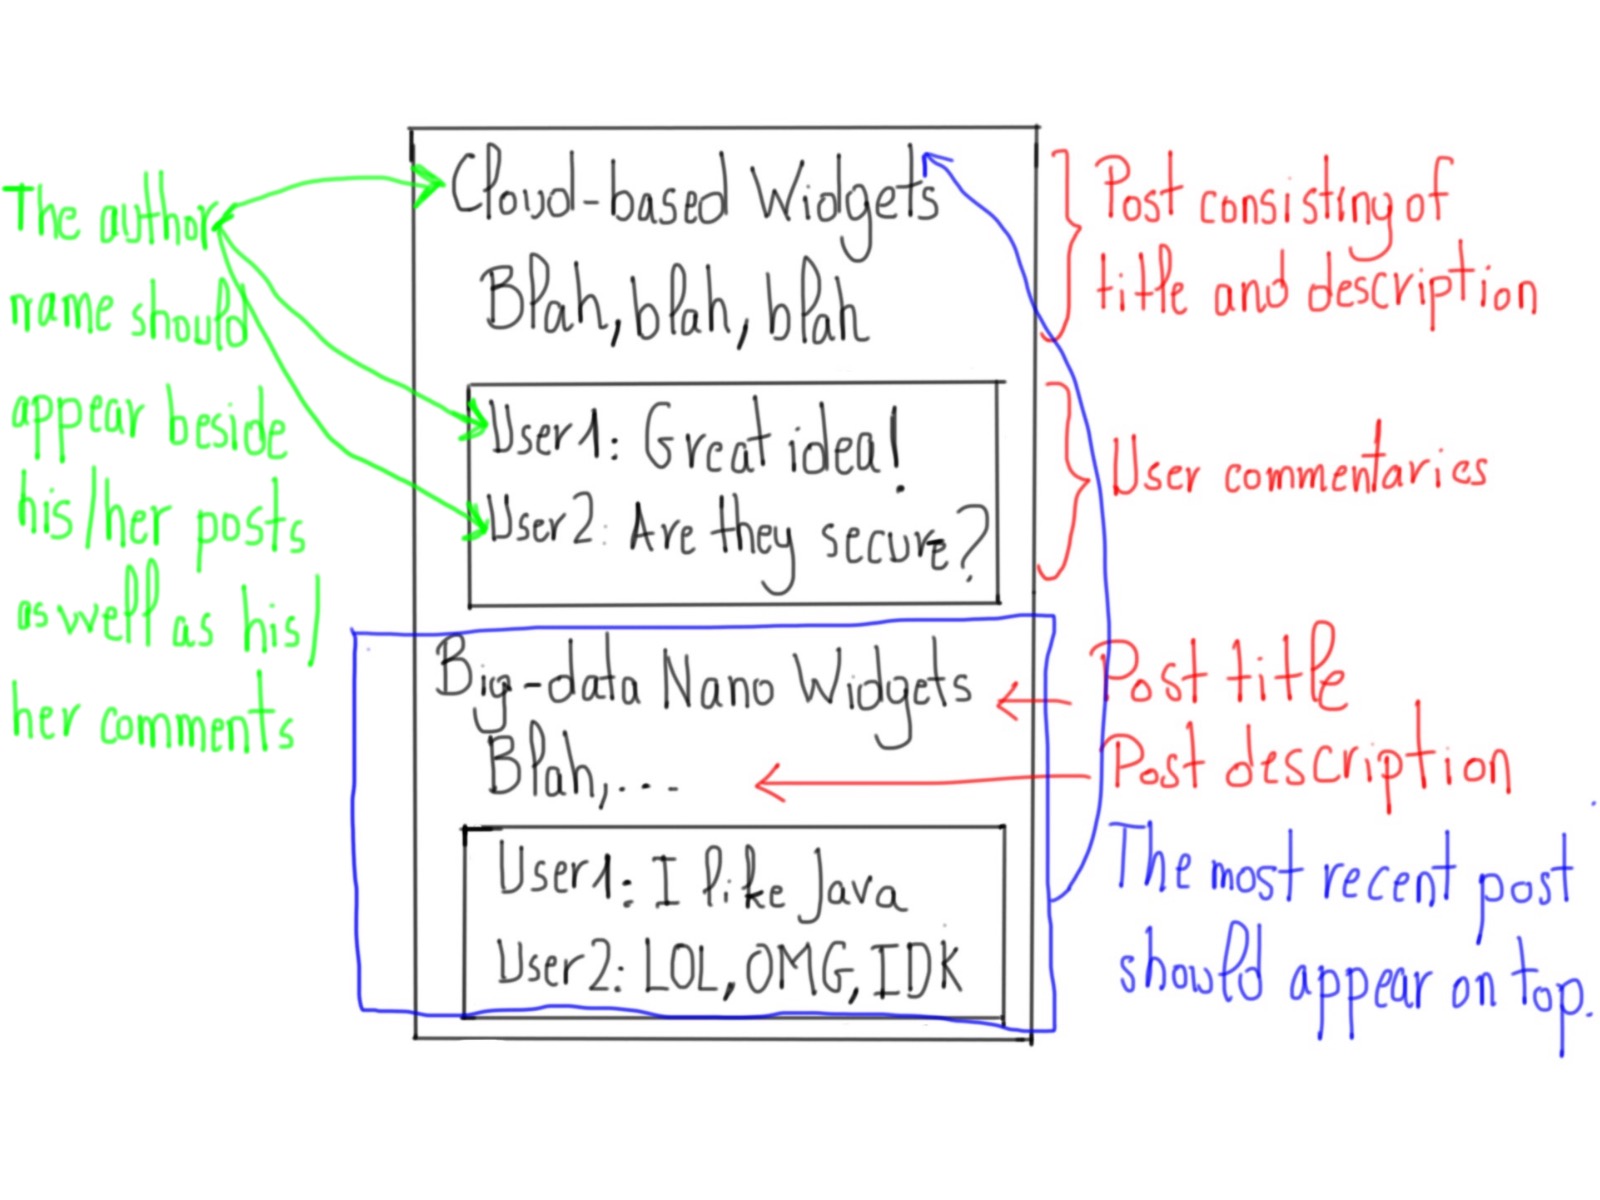 The author
name should
appear beside
his/her posts
as well as his/
her comments
Cloud-based Widgets
Blah, blah, blah
User1: Great idea!
User2: Are they secure?
Big-data Nano Widgets
Blah,...
User1: I like Java
User2: LOL, OMG, IDK
Post consisting of
title and description
User commentaries
Post title
Post description
The most recent post
should appear on top.